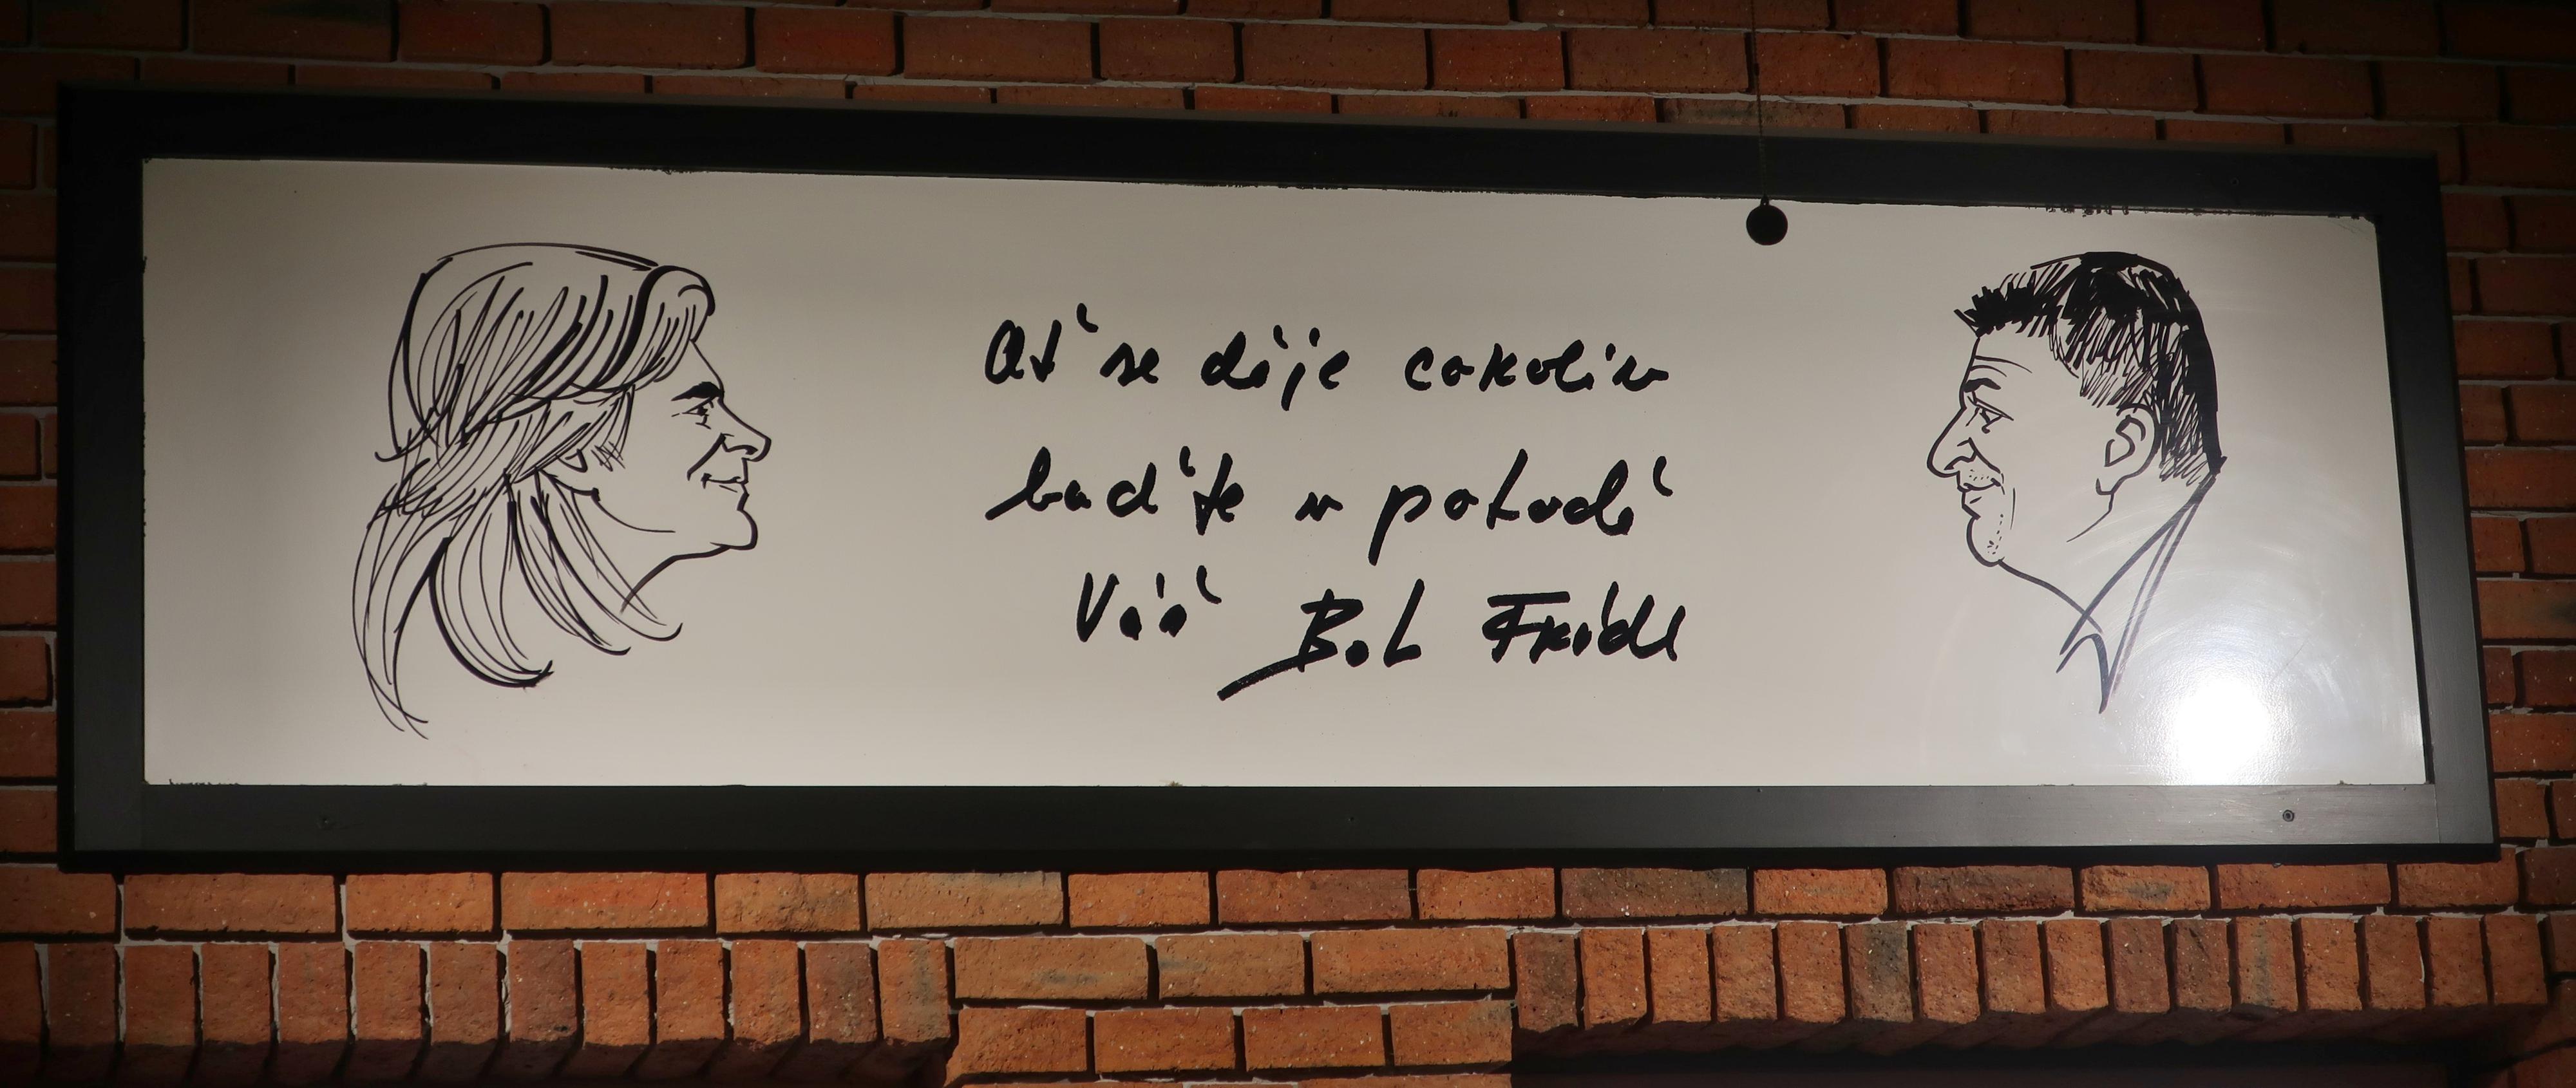 Ať se děje cokoliv
buďte v pohodě
Váš Bob Frídl